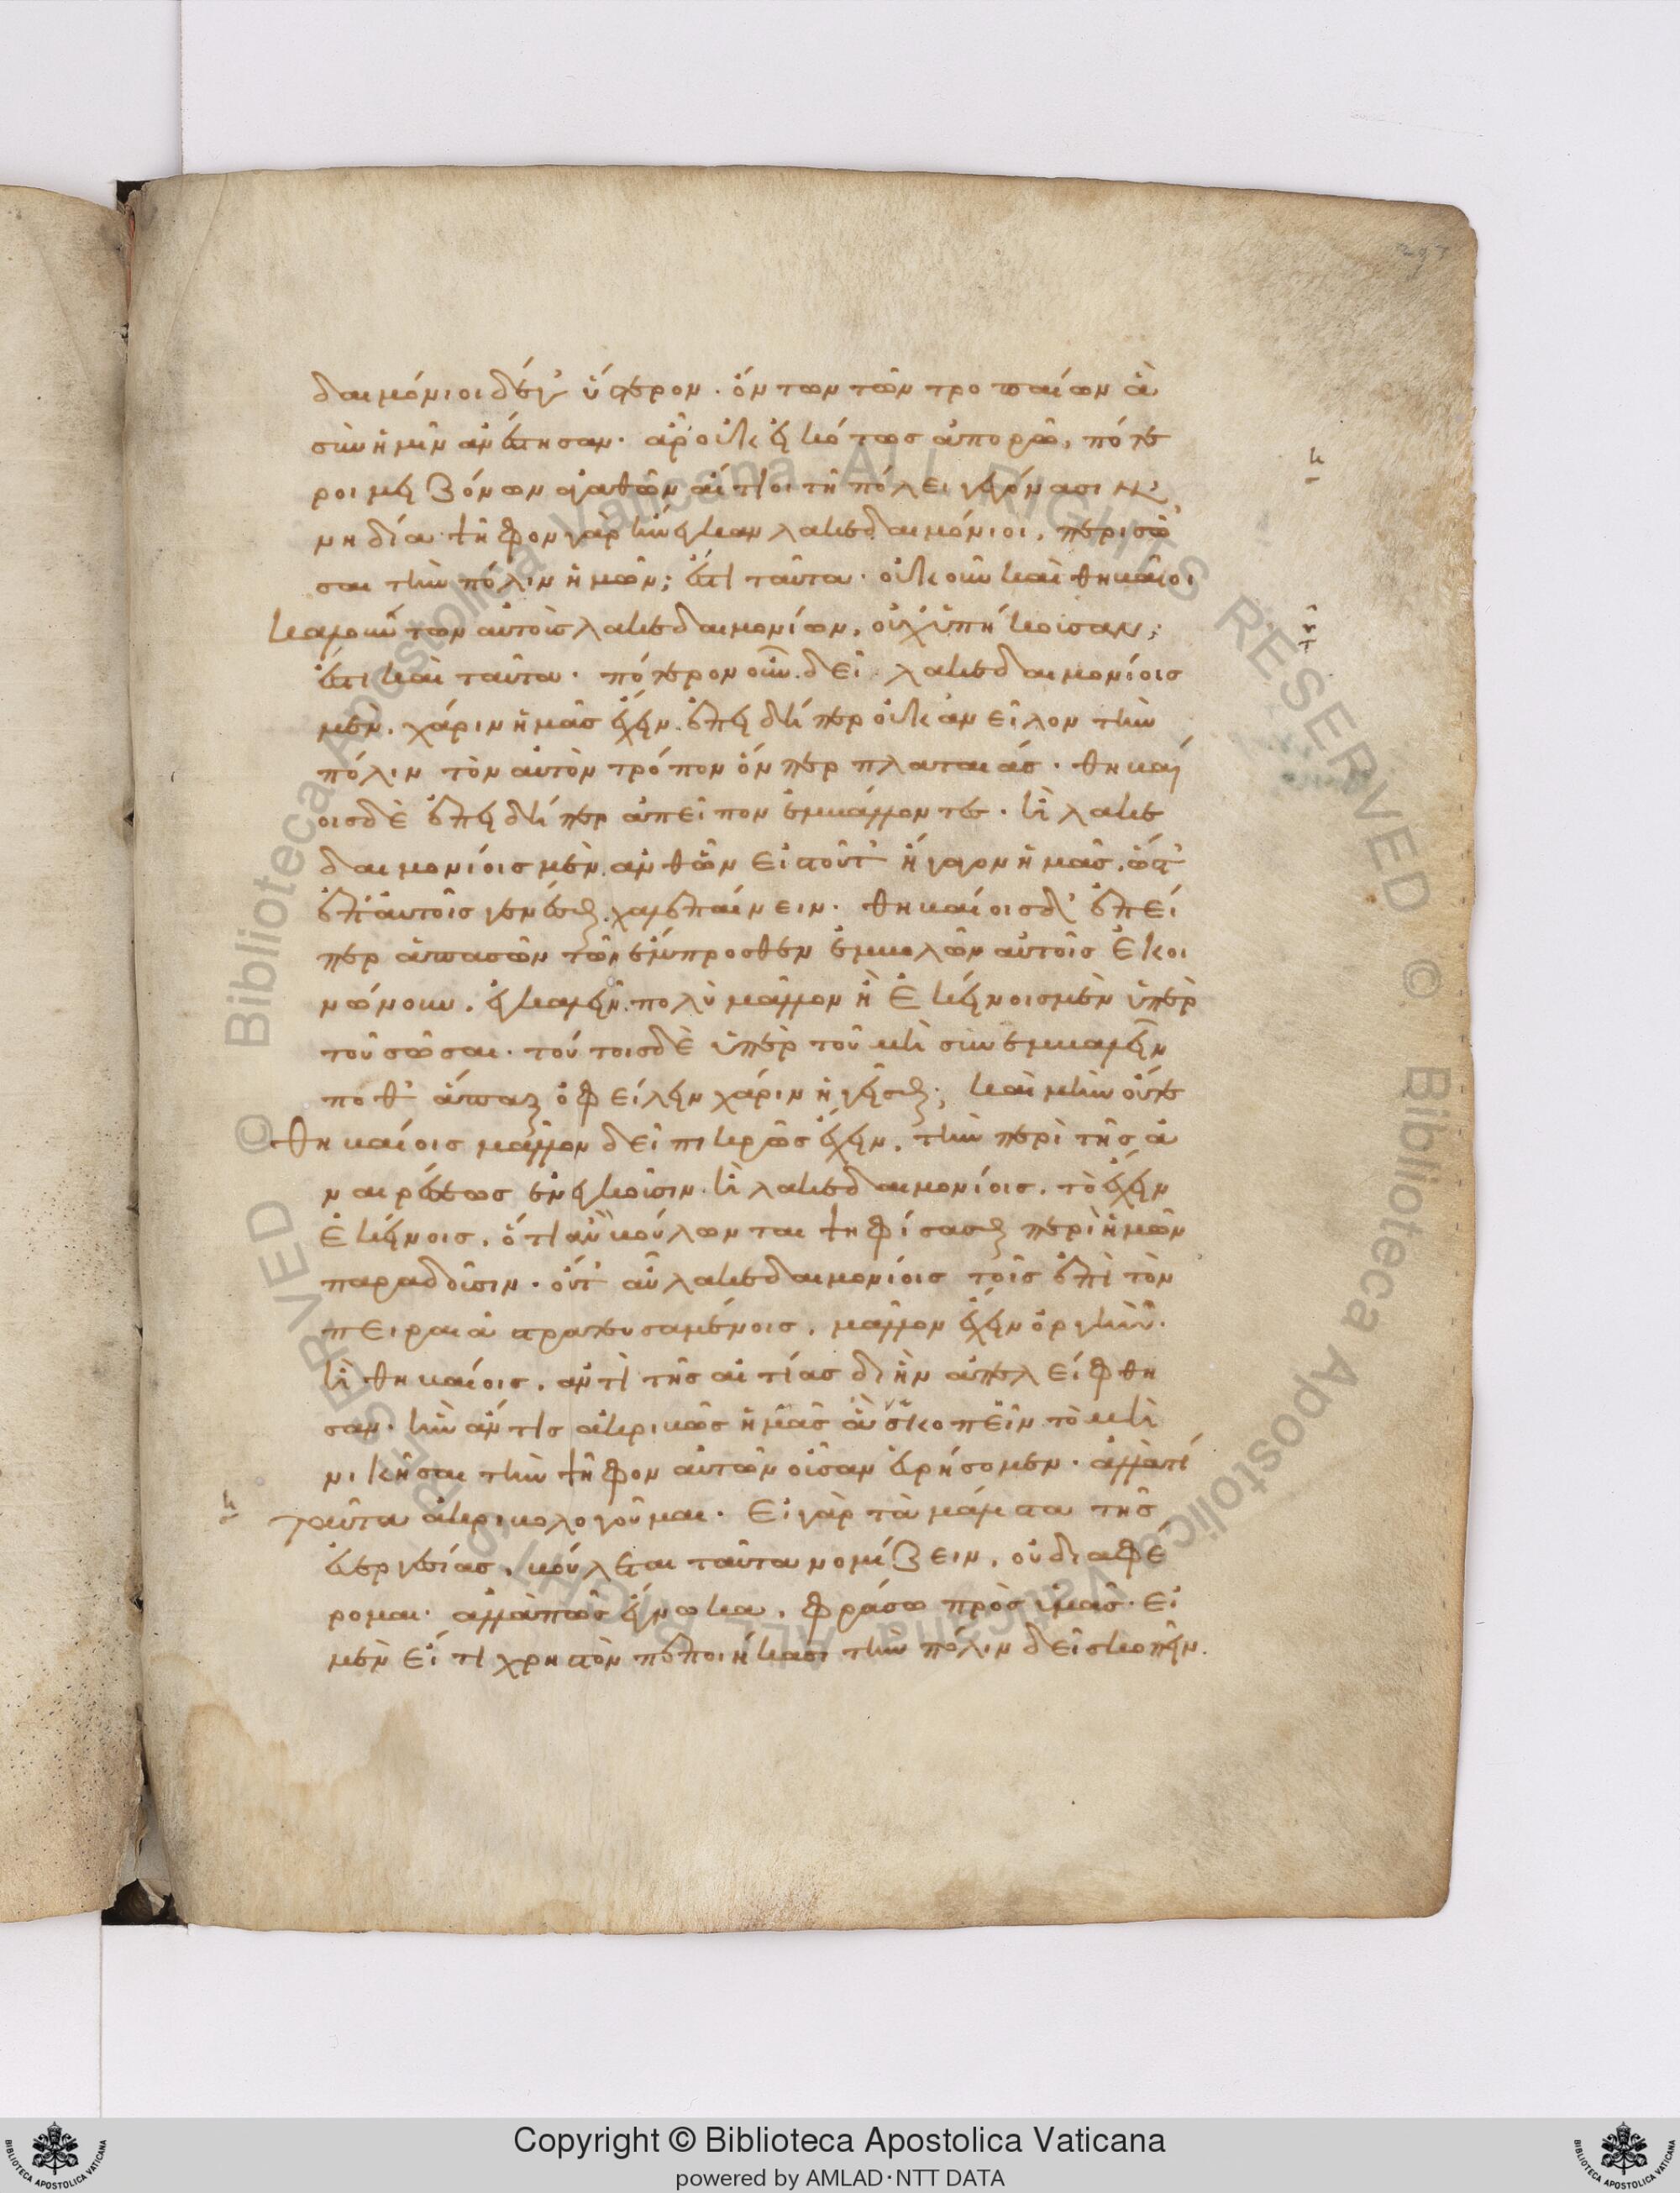 297
δαιμόνιοι δέ γ' ὕστερον. ὄντων τῶν τροπαίων ἃ
σὺν ἡμῖν ἀνέστησαν. ἆρ' οὐκ εἰκότως ἀπορῶ, πότε
ροι μειζόνων ἀγαθῶν αἴτιοι τῆ πόλει γεγόνασι
μηδία ψῆφον γὰρ ἤνεγκαν λακεδαιμόνιοι, περισῶ
σαι τὴν πόλιν ἡμῶν; ἔστι ταῦτα. οὐκοῦν καὶ θηβαῖοι
καλούντων αὐτοὺς λακεδαιμονίων, οὐχ ὑπήκουσαν;
ἔστι καὶ ταῦτα. πότερον οὖν δεῖ λακεδαιμονίοις
μὲν χάριν ἡμᾶς ἔχειν. ἐπειδήπερ οὐκ ἀνεῖλον τὴν
πόλιν τὸν αὐτὸν τρόπον ὅνπερ πλαταιάς. θηβαί
οις δὲ ἐπειδήπερ ἀπεῖπον ἐμβάλλοντες. ἢ λακε
δαιμονίοις μὲν ἀνθ' ὧν εἰς τοῦτ' ἤγαγον ἡμᾶς. ὥστ'
ἐπ' αὐτοῖς γενέσθαι χαλεπαίνειν. θηβαίοις δ' ἐπεί
περ ἁπασῶν τῶν ἔμπροσθεν ἐμβολῶν αὐτοῖς ἐκοι
νώνουν. εἰκαλεῖν πολὺ μᾶλλον ἢ ἐκείνοις μὲν ὑπὲρ
τοῦ σῶσαι. τούτοις δὲ ὑπὲρ τοῦ μὴ συνεμβαλεῖν
ποθ' ἅπαξ ὀφείλειν χάριν ἡγεῖσθαι; καὶ μὴν οὔτε
θηβαίοις μᾶλλον δεῖ πικρῶς ἔχειν, τὴν περὶ τῆς ἀ
ναιρέσεως ἐνεγκοῦσιν. ἢ λακεδαιμονίοις. τὸ ἔχειν
ἐκείνοις. ὅτι ἂν βούλωνται ψηφίσασθαι περὶ ἡμῶν
παραδοῦσιν. οὔτ' αὖ λακεδαιμονίοις τοῖς ἐπὶ τὸν
πειραιᾶ στρατευσαμένοις, μᾶλλον ἔχειν ὀργὴν.
ἢ θηβαίοις. ἀντὶ τῆς αἰτίας δι' ἣν ἀπελείφθη
σαν. κἂν ἄν τις ἀκριβῶς ἡμᾶς ἂν σκοπεῖν τὸ μὴ
νικῆσαι τὴν ψῆφον αὐτῶν οὖσαν εὑρήσομεν. ἀλλὰ τί
ταῦτα ἀκριβολογοῦμαι. εἰ γὰρ τὰ μάλιστα τῆς
εὐεργεσίας, βούλεται ταῦτα νομίζειν, οὐ διαφέ
ρομαι. ἀλλὰ πῶς ἔγνωκα, φράσω πρὸς ὑμᾶς. εἰ
μὲν εἴ τι χρηστὸν πεποιήκασι τὴν πόλιν δεῖ σκοπεῖν.
Copyright © Biblioteca Apostolica Vaticana
powered by AMLAD·NTT DATA